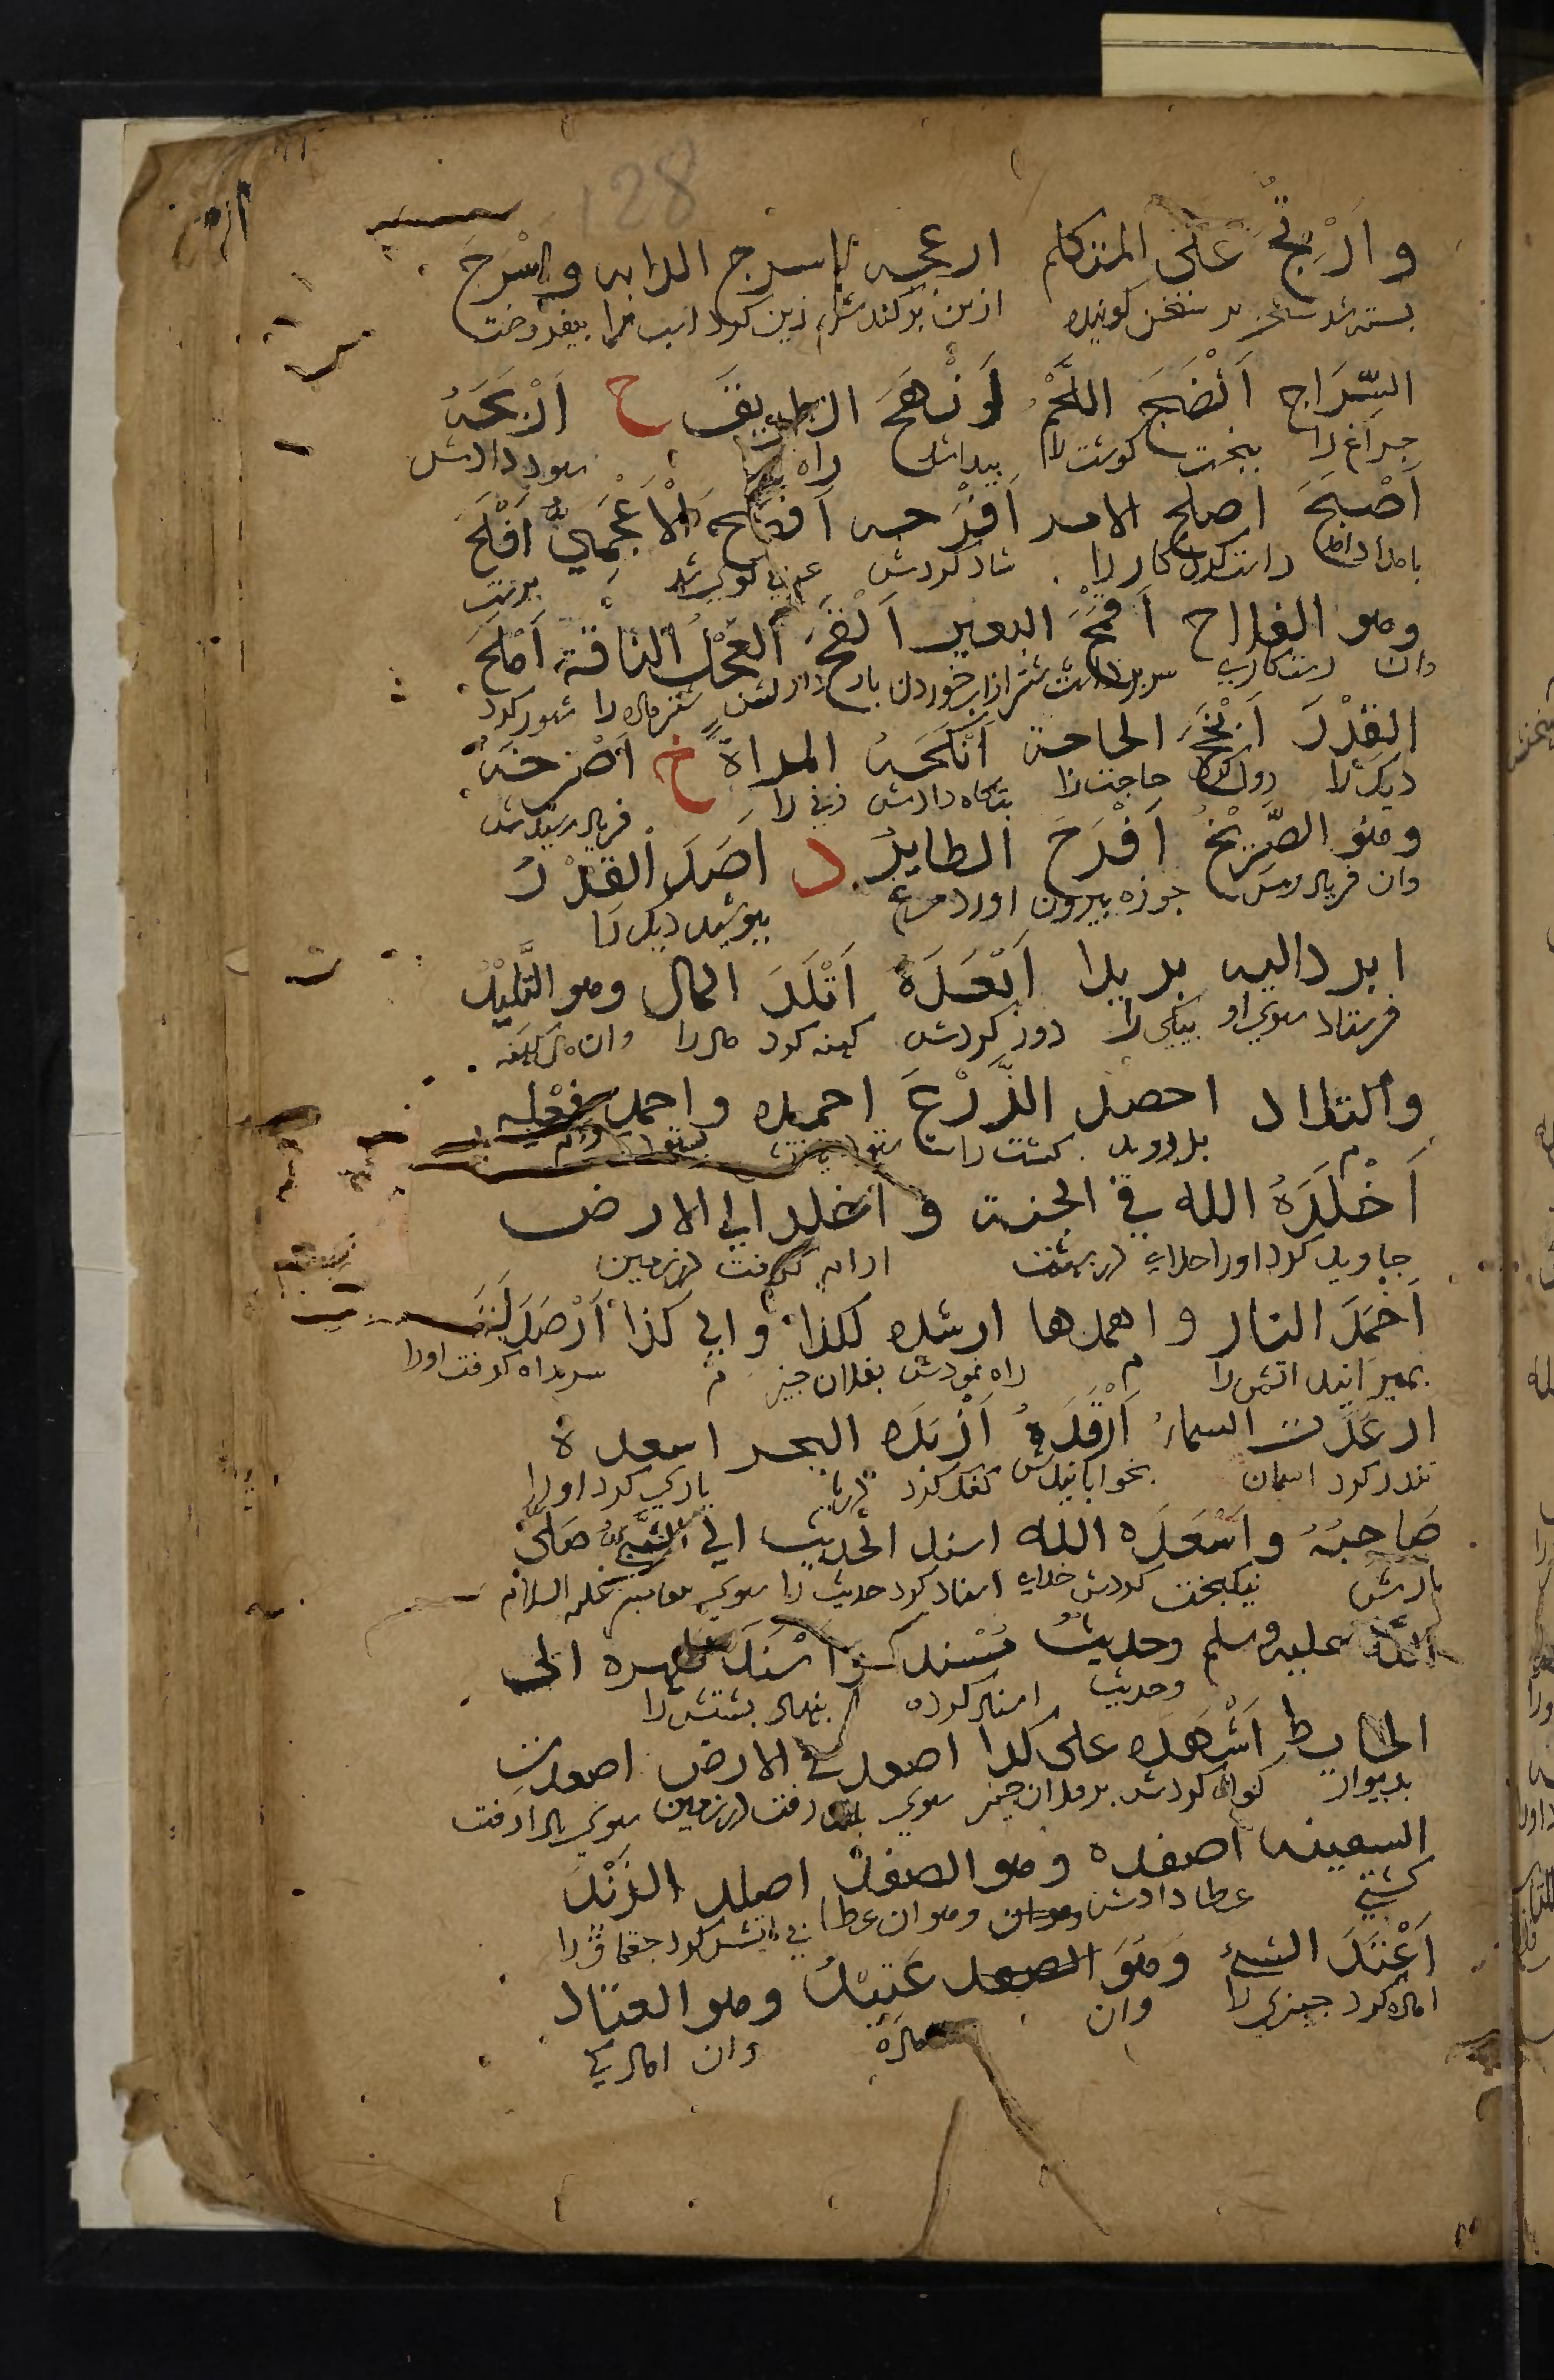 128
وَاُرْتِجَ عَلَى المتكلم ازعجه اسرج الدابه واَسْرَجَ
بسته شد سخن بر سخن كوينده ازبن بركندش زين كرد اسب را بيفروخت
السِّرَاج اَنْضَجَ اللَّحْمَ اَنْهَجَ الطريقَ ح اَرْبَحَهُ
چراغ را بپخت كوشت را پيدا شد راه سود دادش
اَصْبَحَ اصلح الامر اَفْرَحه اَفْصَحَ الْاَعْجَمِيُّ اَفْلَحَ
بامداد راست كرد كار را شاد كردش عربى كوى شد برست
وهو الفلاح اَقْمَحَ البعير اَلْقَحَ الفَحْلُ الناقة اَمْلَحَ
وان رستكارى سر برداشت شتر از آب خوردن بار شتر ماده را شور كرد
القِدْرَ اَنْجَحَ الحاجة اَنْكَحَهُ المراةَ خ اَصْرَخَهُ
ديك را روا كرد حاجت را بنكاه دادش زنى را فرياد رسيدش
وهو الصَّرِيْخُ اَفْرَخَ الطايرُ د اَصَدَ القِدْرَ
وان فرياد رس جوزه بيرون اورد مرغ بپوشيد ديك را
ابرد اليه بريدا اَبْعَدَهُ اَتْلَدَ المال وهو التَّلِيْدُ
فرستاد سوى او پيكى را دور كردش كهنه كرد مال را وان مال كهنه
والتلاد احصد الزَّرْعَ احمده واحمد فِعْلَه
بدرويد كشت را
اَخْلَدَهُ الله في الجنة و اخلد الى الارض
جاويد كرد اورا خداى در بهشت ارام كرفت در زمين
اَخْمَدَ النار و اهمدها ارشده لكذا و الى كذا اَرْصَدَ لَهُ
بميرانيد اتش را م راه نمودش بفلان چيز م سر راه كرفت اورا
ارعَدَت السماءُ اَرْقَدَهُ اَزْبَدَ البحر اسعده
تندر كرد اسمان بخوابانيدش كفك كرد دريا يارى كرد اورا
صَاحِبُهُ واَسْعَدَه الله اسند الحديث الى النبى صَلَّى
يارش نيكبخت كردش خداى اسناد كرد حديث را سوى پيغامبر عليه السلام
اللهُ عليه وسلم وحديثٌ مُسْنَد واَسْنَدَ ظهره الى
وحديث اسناد كرده بنهاد پشتش را
الحايط اَشْهَدَه على كذا اصعد في الارض اصعدت
بديوار كواه كردش بر فلان چيز سوى رفت در زمين سوى بالا رفت
السفينه اصفده وهو الصفد اصلد الزَنْدَ
كشتى عطا دادش وهو ان عطا بى اتش كرد چقماق را
اَعْتَدَ الشئَ وَهُوَ عَتِيْدٌ وهو العتاد
اماده كرد چيزى را وان اماده وان امادكى